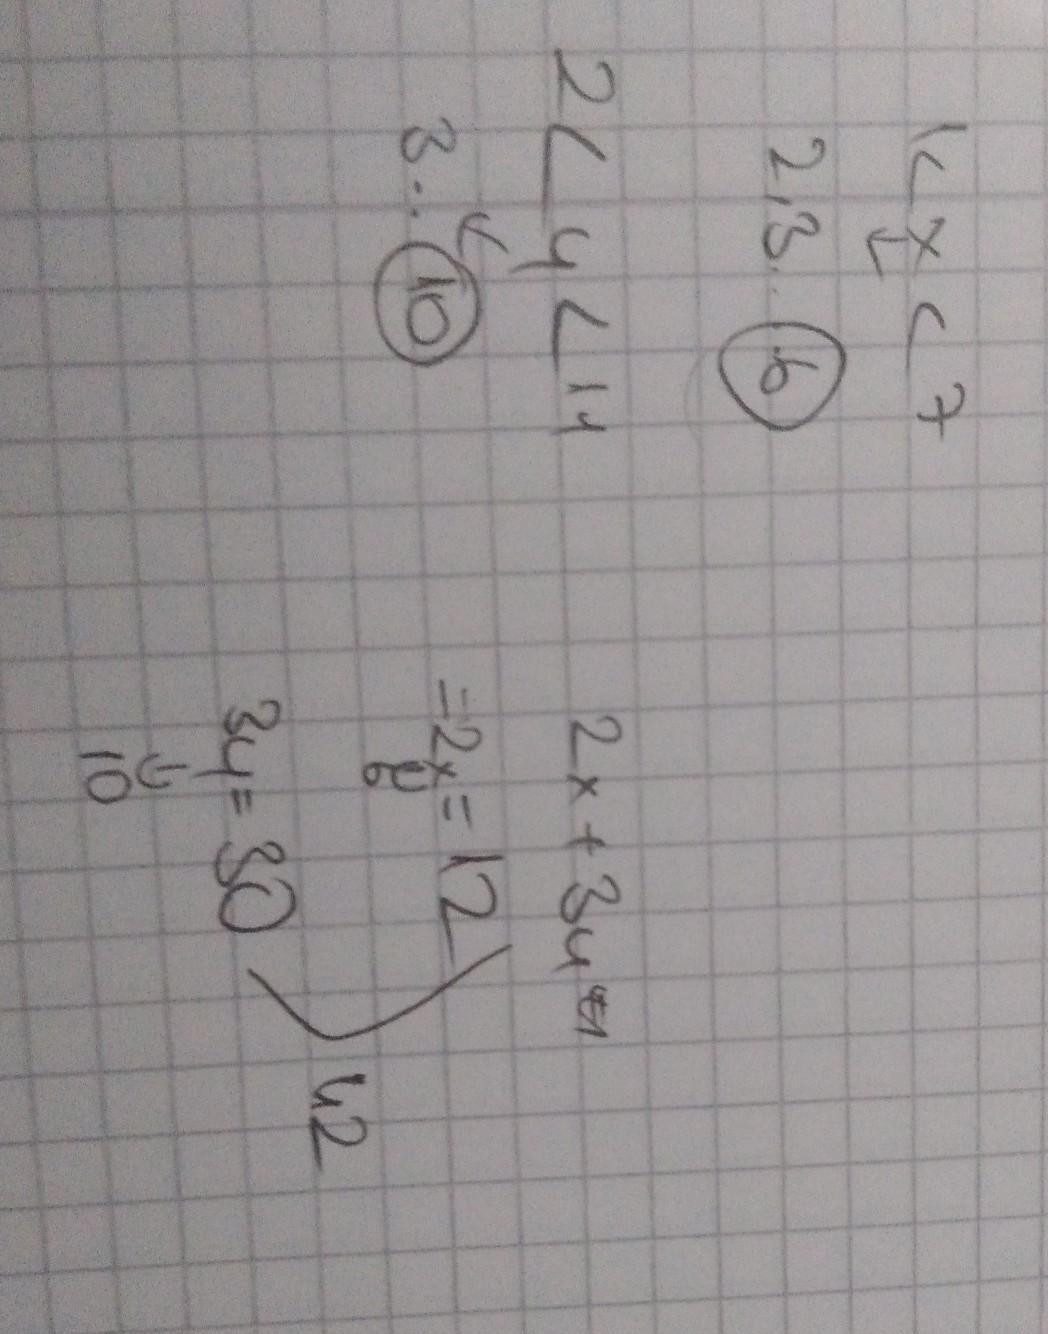 1 < x < 7
↓
2,3...6
2 < y < 11
↓
3..10
2x + 3y
= 2x = 12
↓
6
3y = 30
↓
10
42